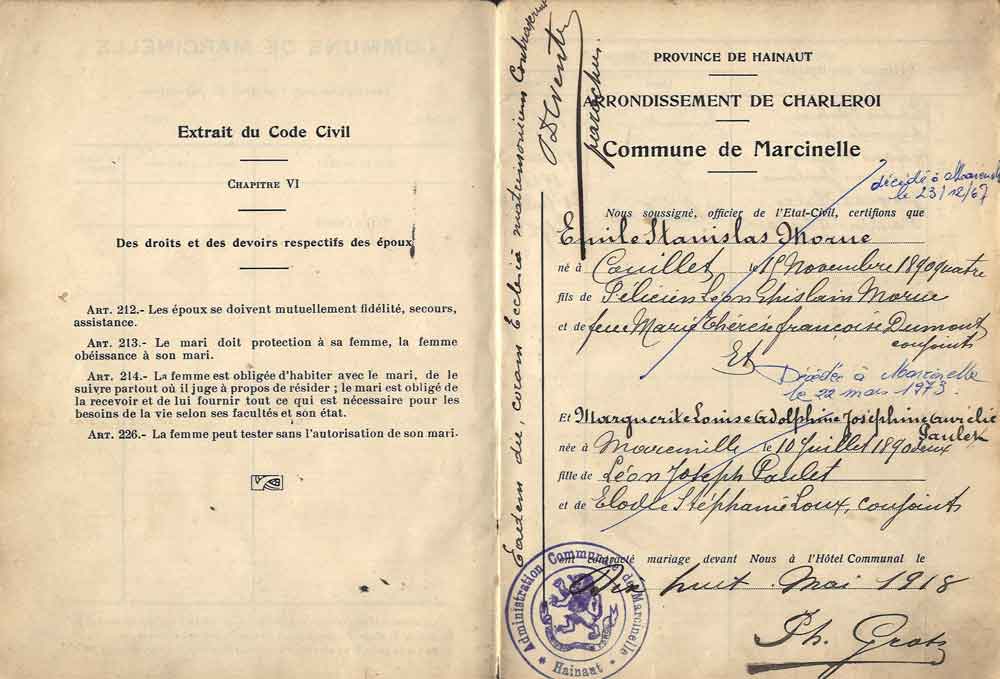 Extrait du Code Civil
CHAPITRE VI
Des droits et des devoirs respectifs des époux
ART. 212.- Les époux se doivent mutuellement fidélité, secours,
assistance.
ART. 213.- Le mari doit protection à sa femme, la femme
obéissance à son mari.
ART. 214.- La femme est obligée d'habiter avec le mari, de le
suivre partout où il juge à propos de résider ; le mari est obligé de
la recevoir et de lui fournir tout ce qui est nécessaire pour les
besoins de la vie selon ses facultés et son état.
ART. 226.- La femme peut tester sans l'autorisation de son mari.
Eadem die, coram Ecclesia matrimonium
parochus
PROVINCE DE HAINAUT
ARRONDISSEMENT DE CHARLEROI
Commune de Marcinelle
décédé à
le 23/12/67
Nous soussigné, officier de l'Etat-Civil, certifions que
Emile Stanislas Morue
né à Couillet le 15 Novembre 1890quatre
fils de Félicien Léon Ghislain Morue
et de feue Marie Thérèse Françoise Dumont
conjoints
Et
Décédée à Marcinelle
le 22 mars 1973.
Et Marguerite Louise Adolphine Joséphine Aurélie
Paulet
née à Marcinelle le 10 Juillet 1890deux
fille de Léon Joseph Paulet
et de Elodie Stéphanie Loux, conjoints
ont contracté mariage devant Nous à l'Hôtel Communal le
Dix huit Mai 1918
Administration Communale de Marcinelle
Hainaut